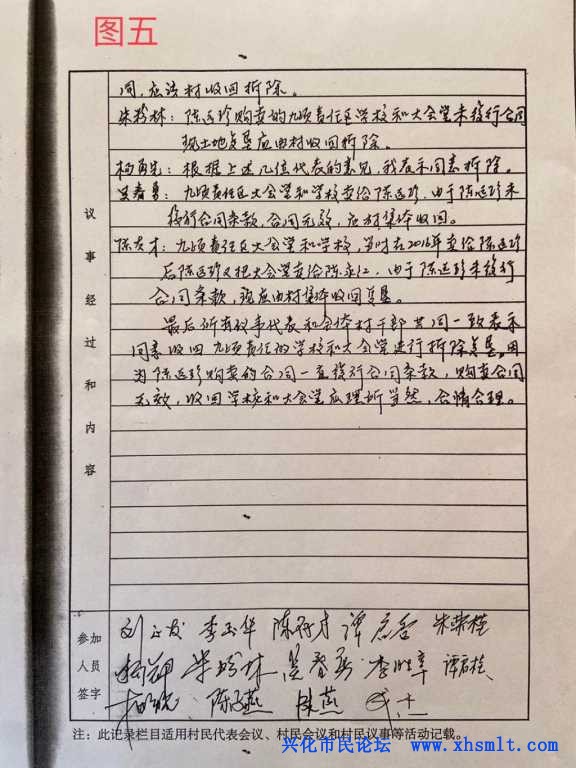 图五
同，应该村收回拆除。
朱玲林：陈远珍购卖的九顷责任区学校和大会堂未履行合同
现土地复垦应由村收回拆除。
根据上述几位代表的意见，我表示同意拆除。
九顷责任区大会堂和学校卖给陈远珍，由于陈远珍未
履行合同条款，合同无效，应村集体收回。
陈友才：九顷责任区大会堂和学校，当时在2016年卖给陈远珍
后陈远珍又把大会堂卖给陈永江，由于陈远珍未履行
合同条款，现应由村集体收回复垦。
最后所有议事代表和全体村干部共同一致表示
同意收回九顷责任的学校和大会堂进行拆除复垦。因
为陈远珍购卖的合同一直履行合同条款，购卖合同
无效，收回学校和大会堂应理所当然，合情合理。
议事经过和内容
参加
人员
签字
李玉华 朱荣桂
陈燕
注：此记录栏目适用村民代表会议、村民会议和村民议事等活动记载。
兴化市民论坛 www.xhsmlt.com